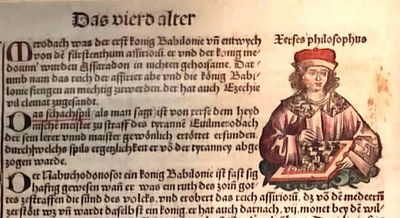 Das vierd alter
Merodach was der erst konig Babilonie vñ entwych
von dẽ fürstenthum assiriorũ. er vnd der konig me
doium wurden Assaradon in nichten gehorsame. Dar
umb nam das reich der assirier abe vnd die kõnig Babi
lonie fiengen an mechtig zuwerden. der hat auch Ezechie
vil clemat zugesandt.
Das schachspil als man sagt ist von xerse dem heyd
nische meister zu straff des tyrannẽ Euilmerodach
der sein lerer vnnd maister gewonlich ertöttet erfunden.
durch welchs spils ergetzlichkeit er võ der tyranney abge
zogen warde.
Der Nabuchodonosor ein konig Babilonie ist fast sig
hafftig gewesen wañ er was ein ruth des zorñ got
tes zestraffen die sünd des volcks. vnd erobert das reich assiriorũ. dz võ dẽ medeern
zerstört wz vñ wardt daselbst ein konig. er hat auch darnach. vij. monet bey dẽ wil
Xerses philosophus